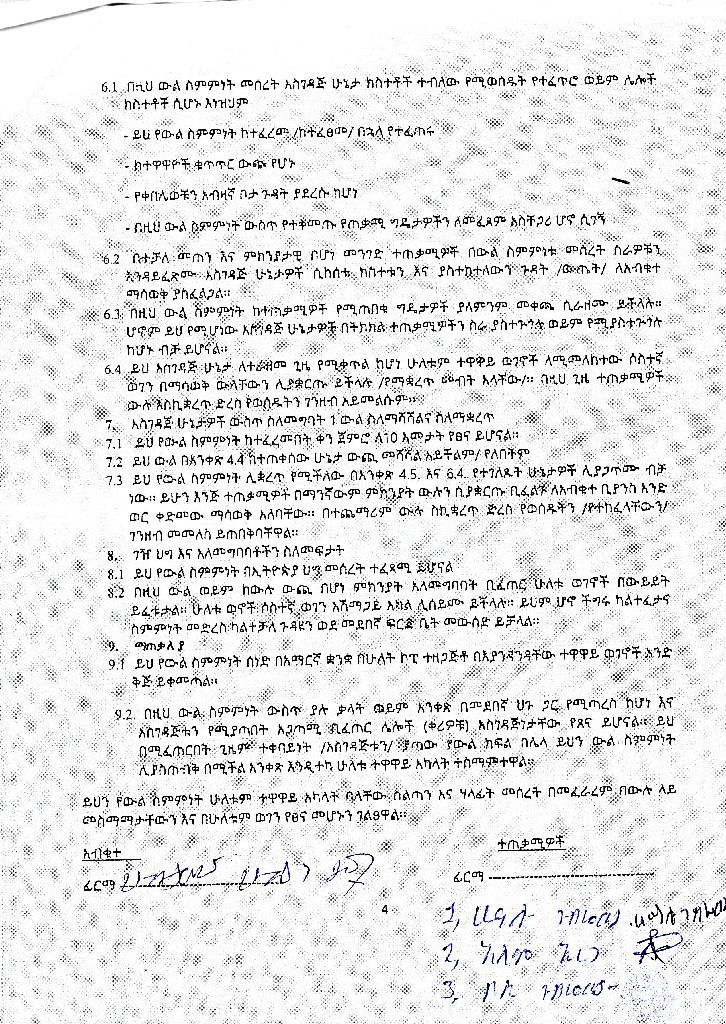 6.1 በዚህ ውል ስምምነት መሰረት አስገዳጅ ሁኔታ ክስተቶች ተብለው የሚወሰዱት የተፈጥሮ ወይም ሌሎች
ክስተቶች ሲሆኑ እነዝህም
- ይህ የውል ስምምነት ከተፈረመ /ከተፈፀመ/ በኋላ የተፈጠሩ
- ከተዋዋዮች ቁጥጥር ውጮ የሆኑ
- የቀበሌወቹን አብዛኛ ቦታ ጉዳት ያደረሱ ከሆነ
- በዚህ ውል ስምምነት ውስጥ የተቀመጡ የጠቃሚ ግዴታዎችን ለመፈጸም አስቸጋሪ ሆኖ ሲገኝ
6.2 በተቻለ መጠን እና ምክንያታዊ በሆነ መንገድ ተጠቃሚዎች በውል ስምምነቱ መሰረት ስራዎቹን
እንዳይፈጽሙ አስገዳጅ ሁኔታዎች ሲከሰቱ ክስተቱን እና ያስተከተለውን ጉዳት /ውጤት/ ለአብቁተ
ማሳወቅ ያስፈልጋል።
6.3 በዚህ ውል ስምምነት ከተጠቃሚዎች የሚጠበቁ ግዴታዎች ያለምንም መቀጮ ሲራዘሙ ይችላሉ።
ሆኖም ይህ የሚሆነው አስገዳጅ ሁኔታዎች በትክክል ተጠቃሚዎችን ስራ ያስተጓጎሉ ወይም የሚያስተጓጎሉ
ከሆኑ ብቻ ይሆናል።
6.4 ይህ አስገዳጅ ሁኔታ ለተራዘመ ጊዜ የሚቀጥል ከሆነ ሁለቱም ተዋዋይ ወገኖች ለሚመለከተው ሶስተኛ
ወገን በማሳወቅ ውላቸውን ሊያቋርጡ ይችላሉ /የማቋረጥ መብት አላቸው/። በዚህ ጊዜ ተጠቃሚዎች
ውሉ እስኪቋረጥ ድረስ የወሰዱትን ገንዘብ አይመልሱም።
7. አስገዳጅ ሁኔታዎች ውስጥ ስለመግባት 1 ውል ስለማሻሻልና ስለማቋረጥ
7.1 ይህ የውል ስምምነት ከተፈረመበት ቀን ጀምሮ ለ10 አመታት የፀና ይሆናል።
7.2 ይህ ውል በአንቀጽ 4.4 ከተጠቀሰው ሁኔታ ውጪ መሻሻል አይችልም/ የለበትም
7.3 ይህ የውል ስምምነት ሊቋረጥ የሚችለው በአንቀጽ 4.5. እና 6.4. የተገለጹት ሁኔታዎች ሊያጋጥሙ ብቻ
ነው። ይሁን እንጅ ተጠቃሚዎች በማንኛውም ምክንያት ውሉን ሲያቋርጡ ቢፈልጉ ለአብቁተ ቢያንስ አንድ
ወር ቀድመው ማሳወቅ አለባቸው። በተጨማሪም ውሉ ስኪቋረጥ ድረስ የወሰዱትን /የተከፈላቸውን/
ገንዘብ መመለስ ይጠበቅባቸዋል።
8. ገዥ ህግ እና አለመግባባቶችን ስለመፍታት
8.1 ይህ የውል ስምምነት በኢትዮጵያ ህግ መሰረት ተፈጻሚ ይሆናል
8.2 በዚህ ውል ወይም ከውሉ ውጪ በሆነ ምክንያት አለመግባባት ቢፈጠር ሁለቱ ወገኖች በውይይት
ይፈቱታል። ሁለቱ ወገኖች ሶስተኛ ወገን አሸማጋይ አካል ሊሰይሙ ይችላሉ። ይህም ሆኖ ችግሩ ካልተፈታና
ስምምነት መድረስ ካልተቻለ ጉዳዩን ወደ መደበኛ ፍርድ ቤት መውሰድ ይቻላል።
9. ማጠቃለያ
9.1 ይህ የውል ስምምነት ሰነድ በአማርኛ ቋንቋ በሁለት ኮፒ ተዘጋጅቶ በእያንዳንዳቸው ተዋዋይ ወገኖች አንድ
ቅጅ ይቀመጣል።
9.2. በዚህ ውል ስምምነት ውስጥ ያሉ ቃላት ወይም አንቀጽ በመደበኛ ህጉ ጋር የሚጣረስ ከሆነ እና
አስገዳጅቱን የሚያጣበት አጋጣሚ ቢፈጠር ሌሎች (ቀሪዎቹ) አስገዳጅነታቸው የጸና ይሆናል። ይህ
በሚፈጠርበት ጊዜም ተቀባይነት /አስገዳጅቱን/ ያጣው የውል ክፍል በሌላ ይህን ውል ስምምነት
ሊያስጠብቅ በሚችል አንቀጽ እንዲተካ ሁለቱ ተዋዋይ አካላት ተስማምተዋል።
ይህን የውል ስምምነት ሁለቱም ተዋዋይ አካላት ባላቸው ስልጣን እና ሃላፊት መሰረት በመፈራረም በውሉ ላይ
መስማማታቸውን እና በሁለቱም ወገን የፀና መሆኑን ገልፀዋል።
አብቁተ
ተጠቃሚዎች
ፊርማ
ፊርማ
4
1,
2,
3,